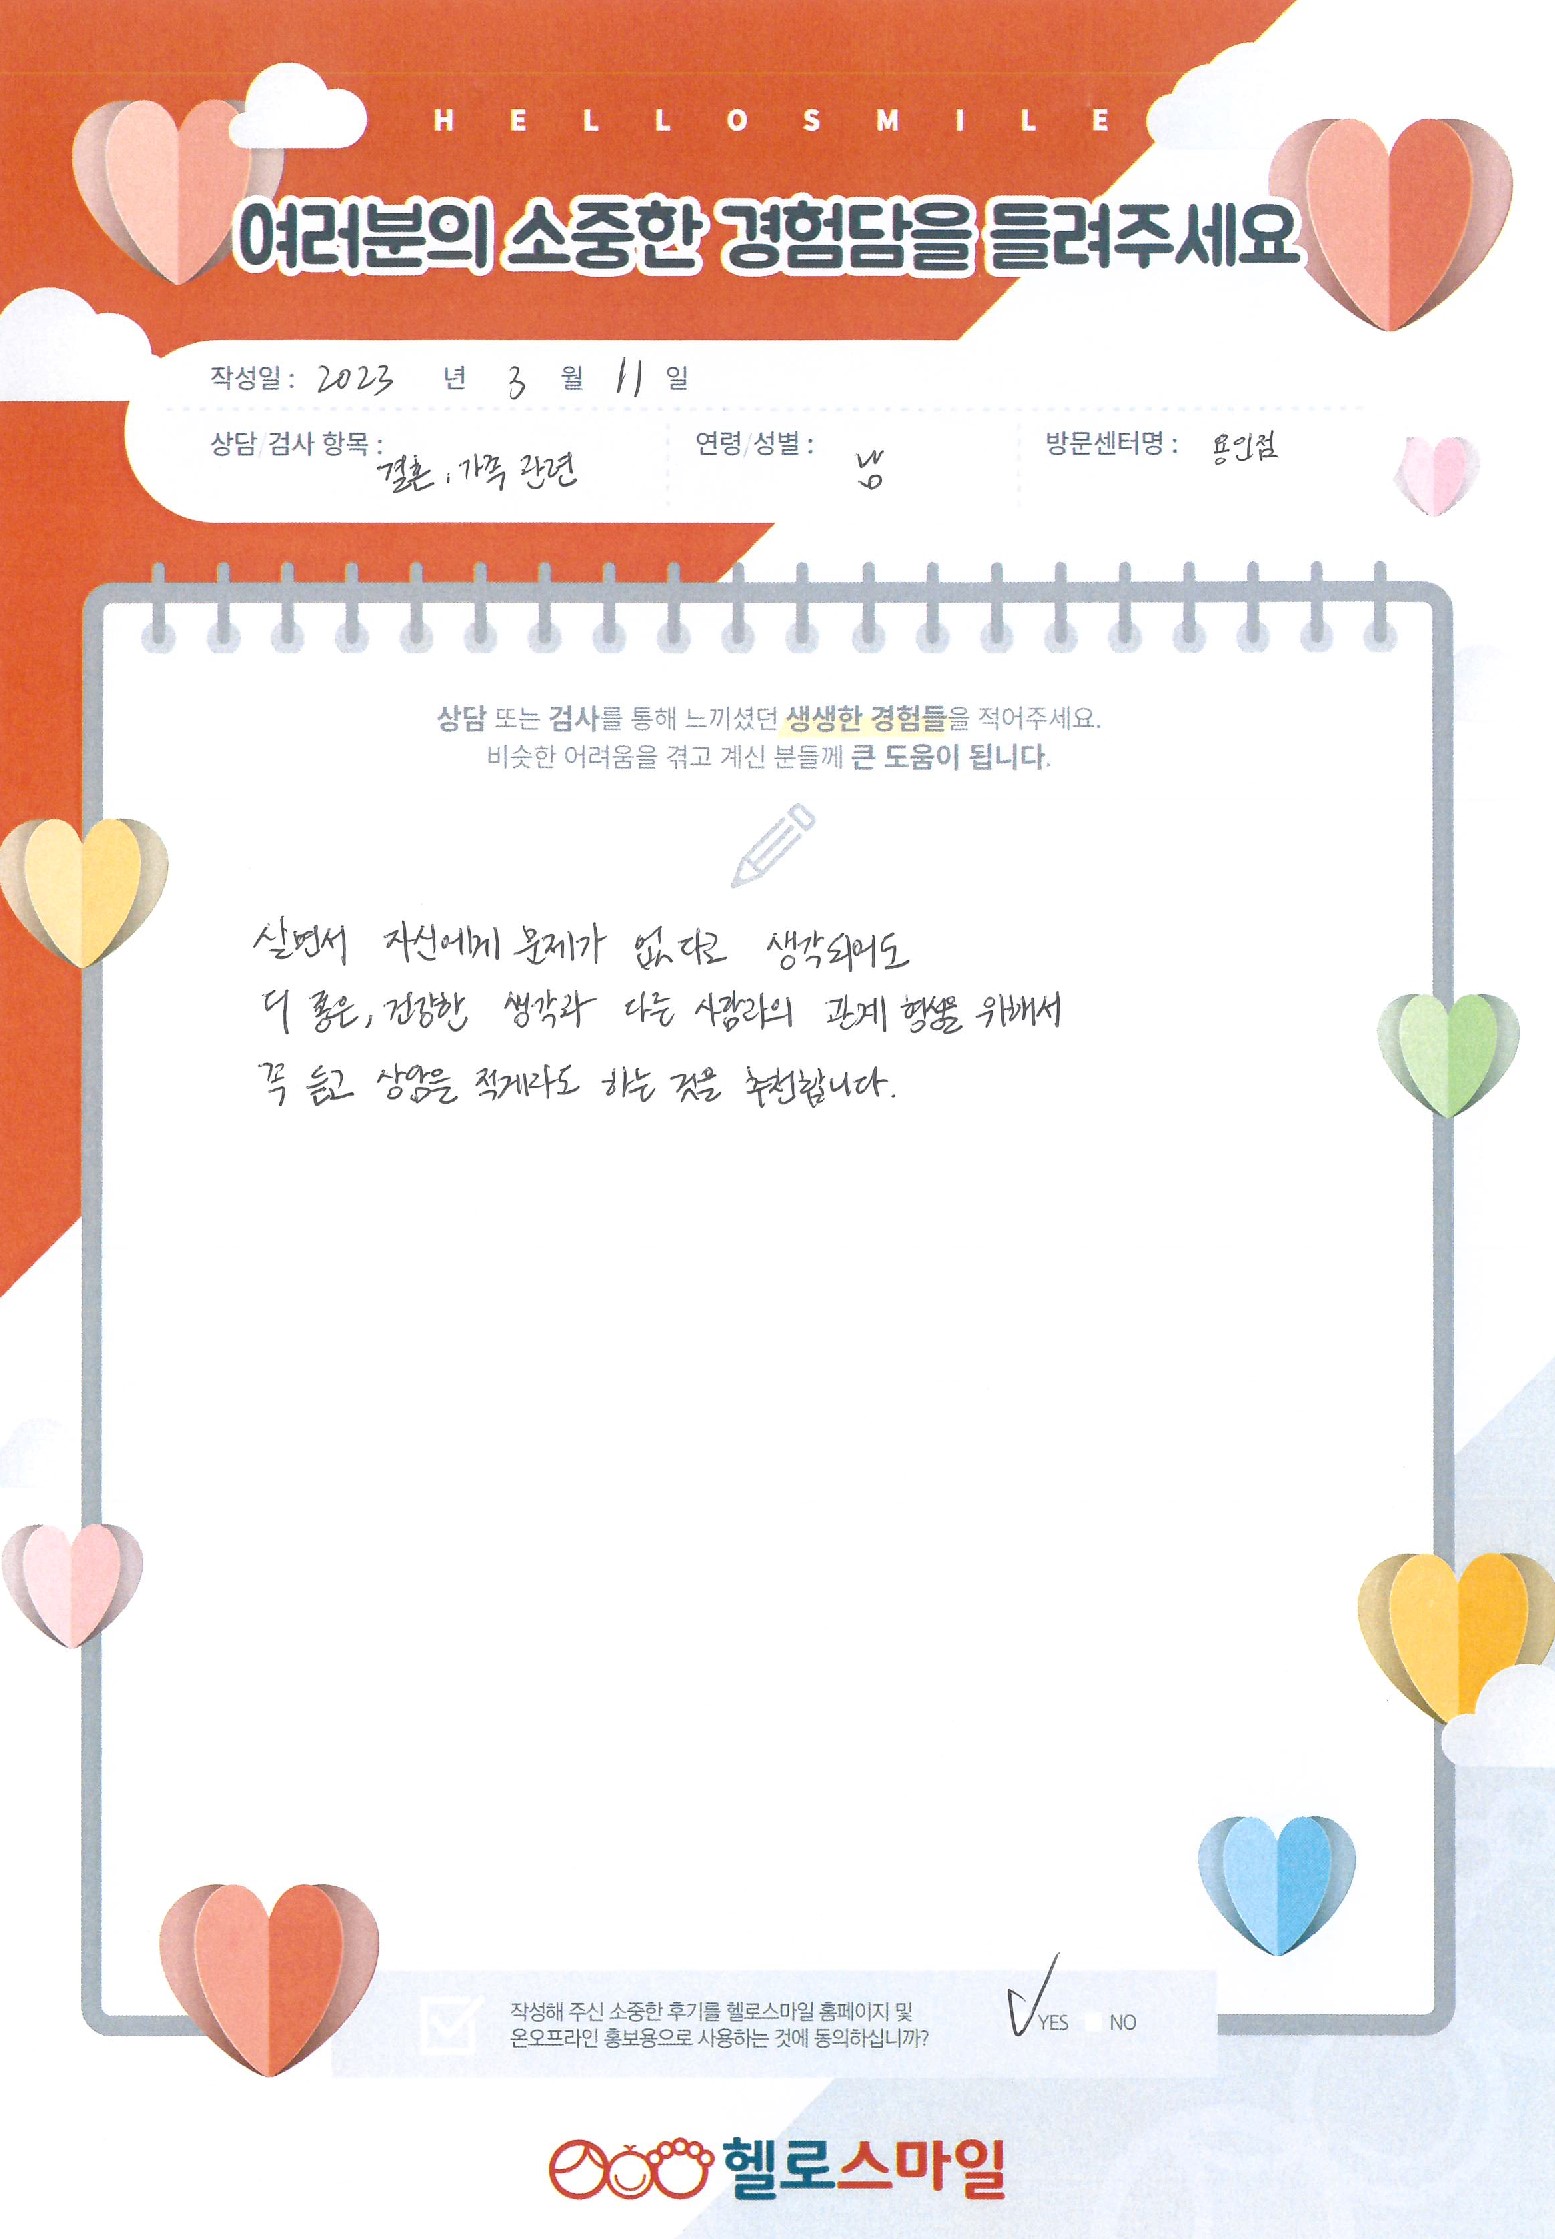 HELLOSMILE
여러분의 소중한 경험담을 들려주세요
작성일 : 2023 년 3 월 11 일
상담/검사 항목 : 결혼, 가족 관련 연령/성별 : 남 방문센터명 : 용인점
상담 또는 검사를 통해 느끼셨던 생생한 경험들을 적어주세요.
비슷한 어려움을 겪고 계신 분들께 큰 도움이 됩니다.
살면서 자신에게 문제가 없다고 생각되어도
더 좋은, 건강한 생각과 다른 사람과의 관계 형성을 위해서
꼭 듣고 상담을 적게라도 하는 것을 추천합니다.
작성해 주신 소중한 후기를 헬로스마일 홈페이지 및
온오프라인 홍보용으로 사용하는 것에 동의하십니까? YES NO
헬로스마일